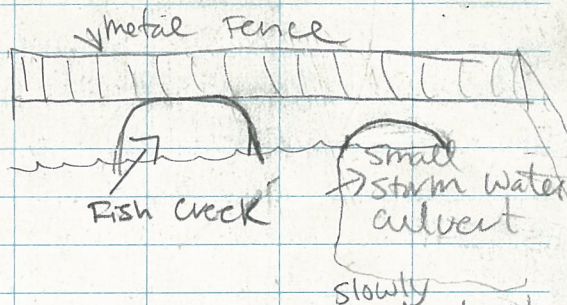 metal Fence
Fish Creek
small
storm water
culvert
slowly